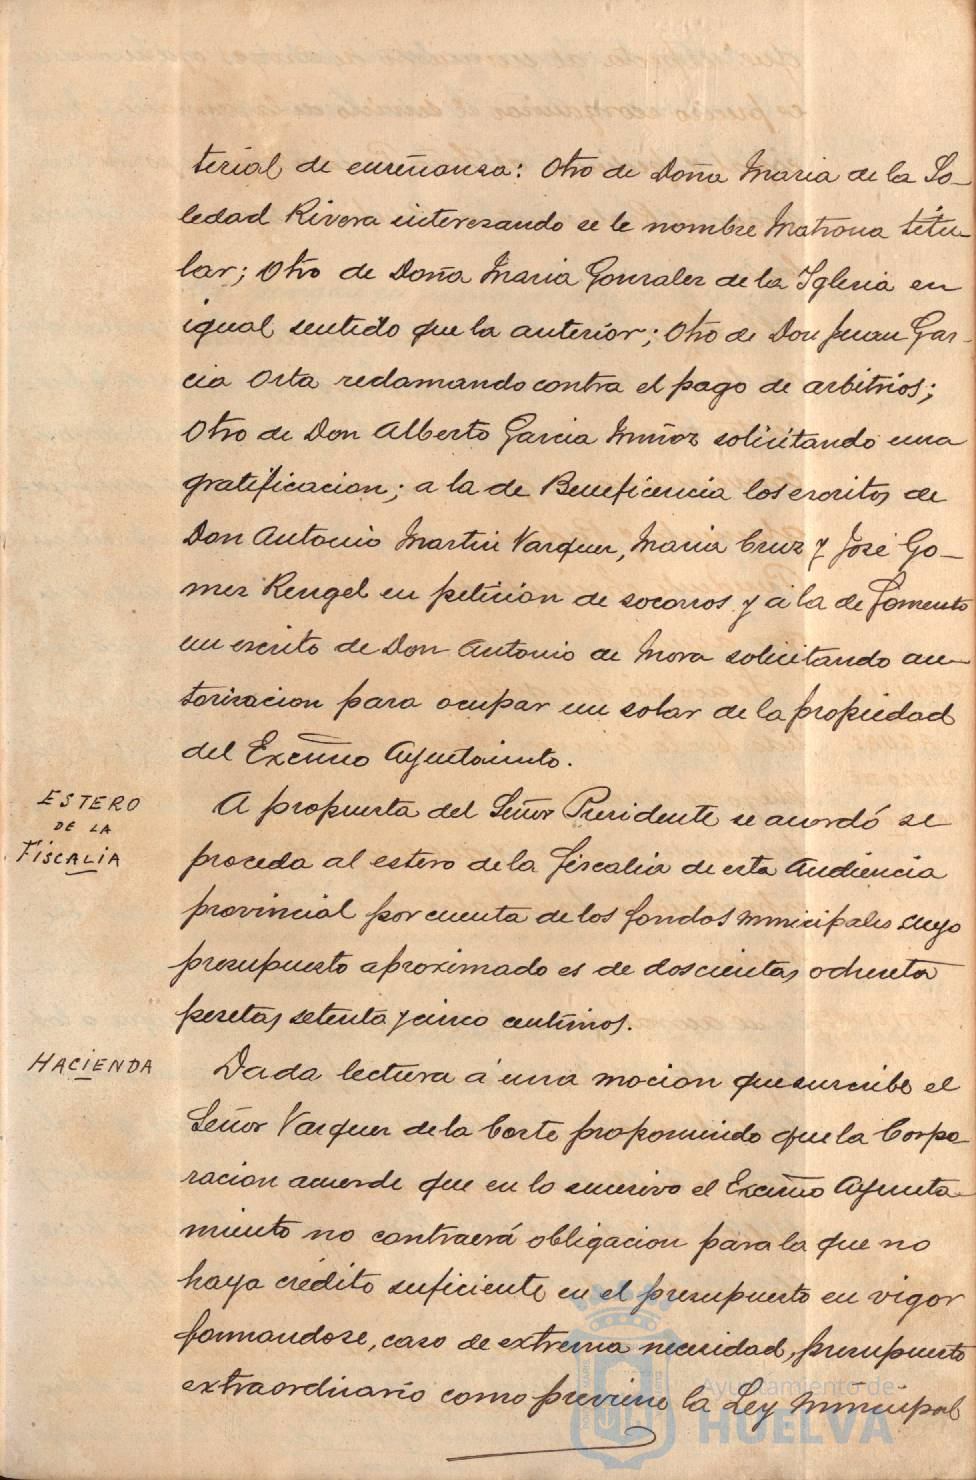 terial de enseñanza: Otro de Doña Maria de la So-
ledad Rivera interesando se le nombre Matrona titu-
lar; Otro de Doña Maria Gonzalez de la Iglesia en
igual sentido que la anterior; Otro de Don Juan Gar-
cia Orta reclamando contra el pago de arbitrios;
Otro de Don Alberto Garcia Muñoz solicitando una
gratificacion; a la de Beneficencia los escritos de
Don Antonio Martin Vazquez, Maria Cruz y José Go-
mez Rengel en peticion de socorros y a la de Fomento
un escrito de Don Antonio de Mora solicitando au-
torizacion para ocupar un solar de la propiedad
del Excmo Ayuntamiento.
ESTERO
DE LA
FISCALIA
A propuesta del Señor Presidente se acordó se
proceda al estero de la fiscalia de esta Audiencia
provincial por cuenta de los fondos municipales cuyo
presupuesto aproximado es de doscientas ochenta
pesetas setenta y cinco centimos.
HACIENDA
Dada lectura á una mocion que suscribe el
Señor Vazquez de la Corte proponiendo que la Corpo-
racion acuerde que en lo sucesivo el Excmo Ayunta-
miento no contraerá obligacion para la que no
haya crédito suficiente en el presupuesto en vigor
formandose, caso de extrema necesidad, presupuesto
extraordinario como previene la Ley Municipal
Ayuntamiento de
HUELVA